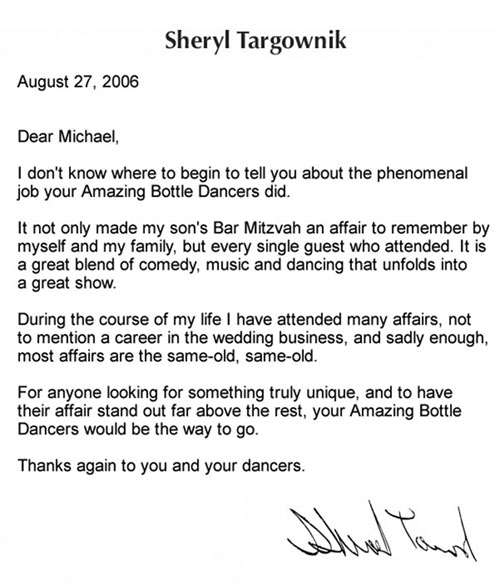 Sheryl Targownik
August 27, 2006
Dear Michael,
I don't know where to begin to tell you about the phenomenal
job your Amazing Bottle Dancers did.
It not only made my son's Bar Mitzvah an affair to remember by
myself and my family, but every single guest who attended. It is
a great blend of comedy, music and dancing that unfolds into
a great show.
During the course of my life I have attended many affairs, not
to mention a career in the wedding business, and sadly enough,
most affairs are the same-old, same-old.
For anyone looking for something truly unique, and to have
their affair stand out far above the rest, your Amazing Bottle
Dancers would be the way to go.
Thanks again to you and your dancers.